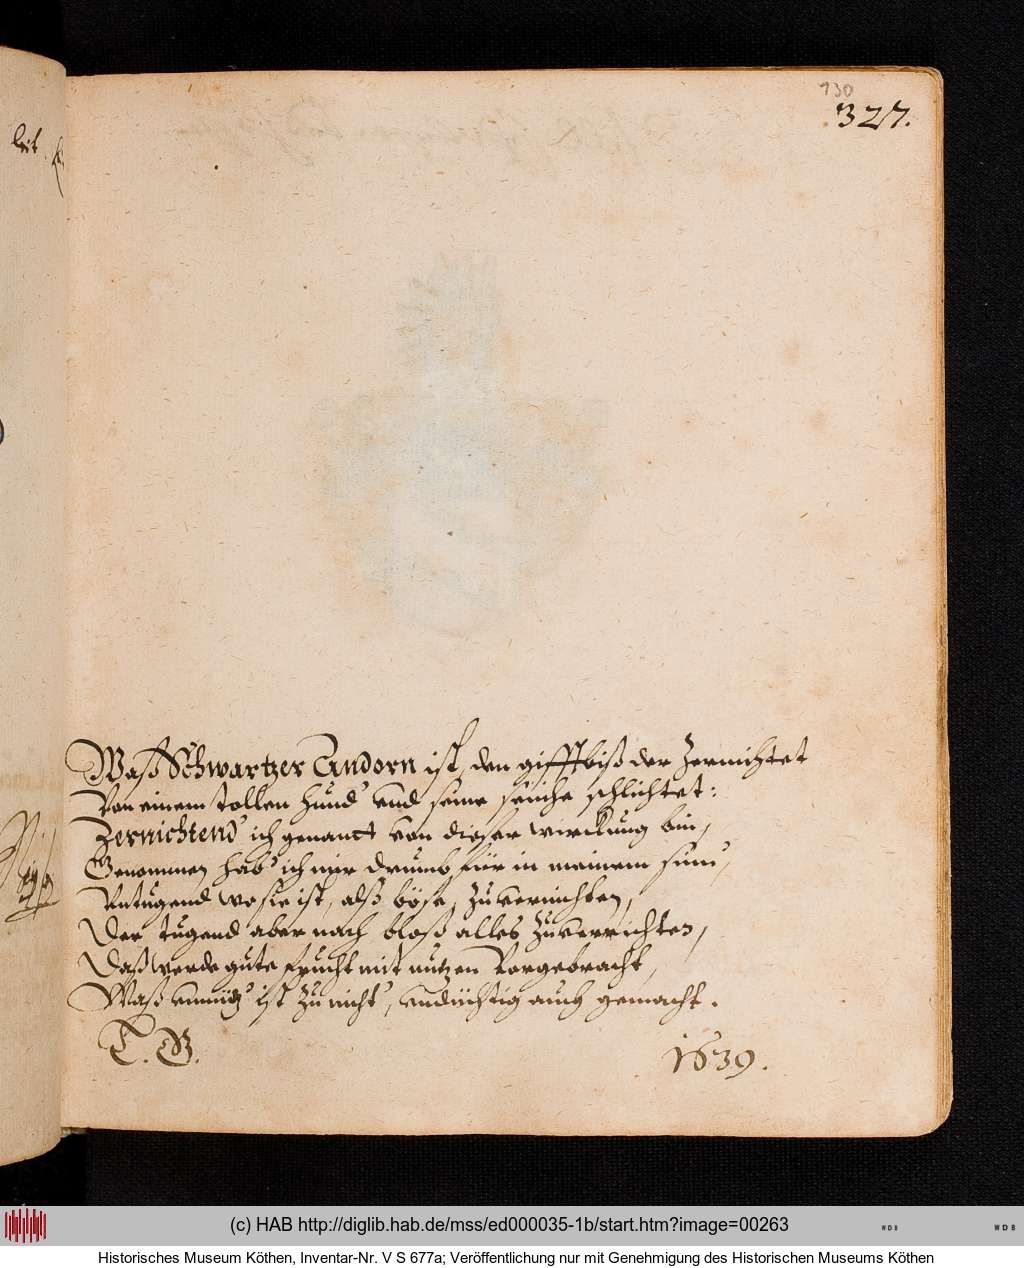 130
327.
Waß Schwartzer Andorn ist, den gifftbiß der Zernichtet
Von einem tollen Hund' und seine seüche schlichtet:
Zernichtend' ich genant von dieser wirckung bin,
Genommen hab' ich mir drumb für in meinem sinn,
Untugend wo sie ist, alß böse, Zu vernichten,
Der tugend aber nach bloß alles Zu verrichten,
Daß werde gute frucht mit nutzen Vorgebracht,
Waß unnütz' ist Zu nicht', undüchtig auch gemacht.
1639.
(c) HAB http://diglib.hab.de/mss/ed000035-1b/start.htm?image=00263
WDB
WDB
Historisches Museum Köthen, Inventar-Nr. V S 677a; Veröffentlichung nur mit Genehmigung des Historischen Museums Köthen